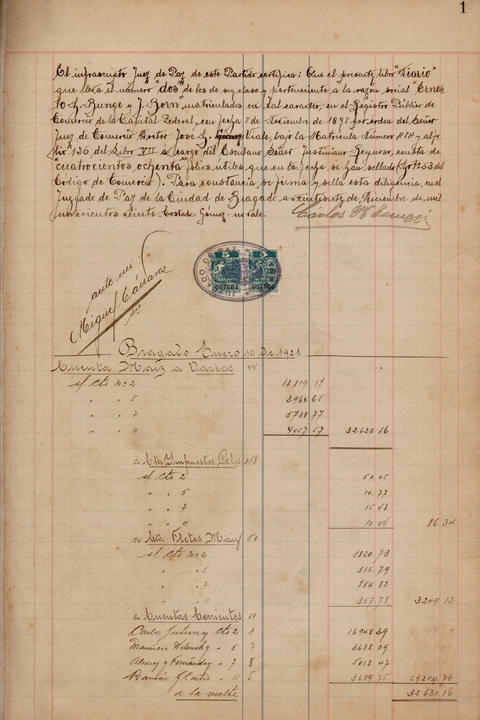 1
El infrascripto Juez de Paz de este Partido certifica: Que el presente libro "Diario"
que lleva el número "dos" de los de su clase y perteneciente a la razón social "Ernes
to A. Bunge y J. Born" matriculados en tal caracter, en el Registro Público de
Comercio de la Capital Federal, con fecha 7 de Noviembre de 1897 por orden del Señor
Juez de Comercio Doctor José
Viale, bajo la Matricula Número 414 y al fo
lio 136 del Libro III a cargo del Escribano Señor Justiniano, consta de
"cuatrocientos ochenta" folios útiles que en la fecha se han sellado (Art. 53 del
Código de Comercio). Para constancia se firma y sella esta diligencia, en el
Juzgado de Paz de la Ciudad de Bragado a veintisiete de Diciembre de mil
novecientos veinte. Testado: Gómez - no vale.
Carlos
ante mi:
Miguel
JUZGADO DE PAZ
007664 007665
Bragado Enero 10 de 1921
Cuenta Maíz a Varios 44
s/. Cte nº 2 18819 17
" " 5 3968 65
" " 7 5788 77
" " 11 4057 57 32630.16
a Cta Impuestos Pcles 48
s/. Cte 2 50.05
" " 5 10.77
" " 7 15.48
" " 11 10.04 86.34
a Cta Fletes Maíz 50
s/. Cte nº 2 1820.73
" " 5 315.79
" " 7 754.82
" " 11 357.78 3249.12
a Cuentas Corrientes 10
Carlo Cte 2 1 16948.39
Mauricio " 5 7 3638.09
Alvarez y Fernández " 7 8 5018.47
Ramón G. Castro " 11 5 3689.75 29294.70
32630.16